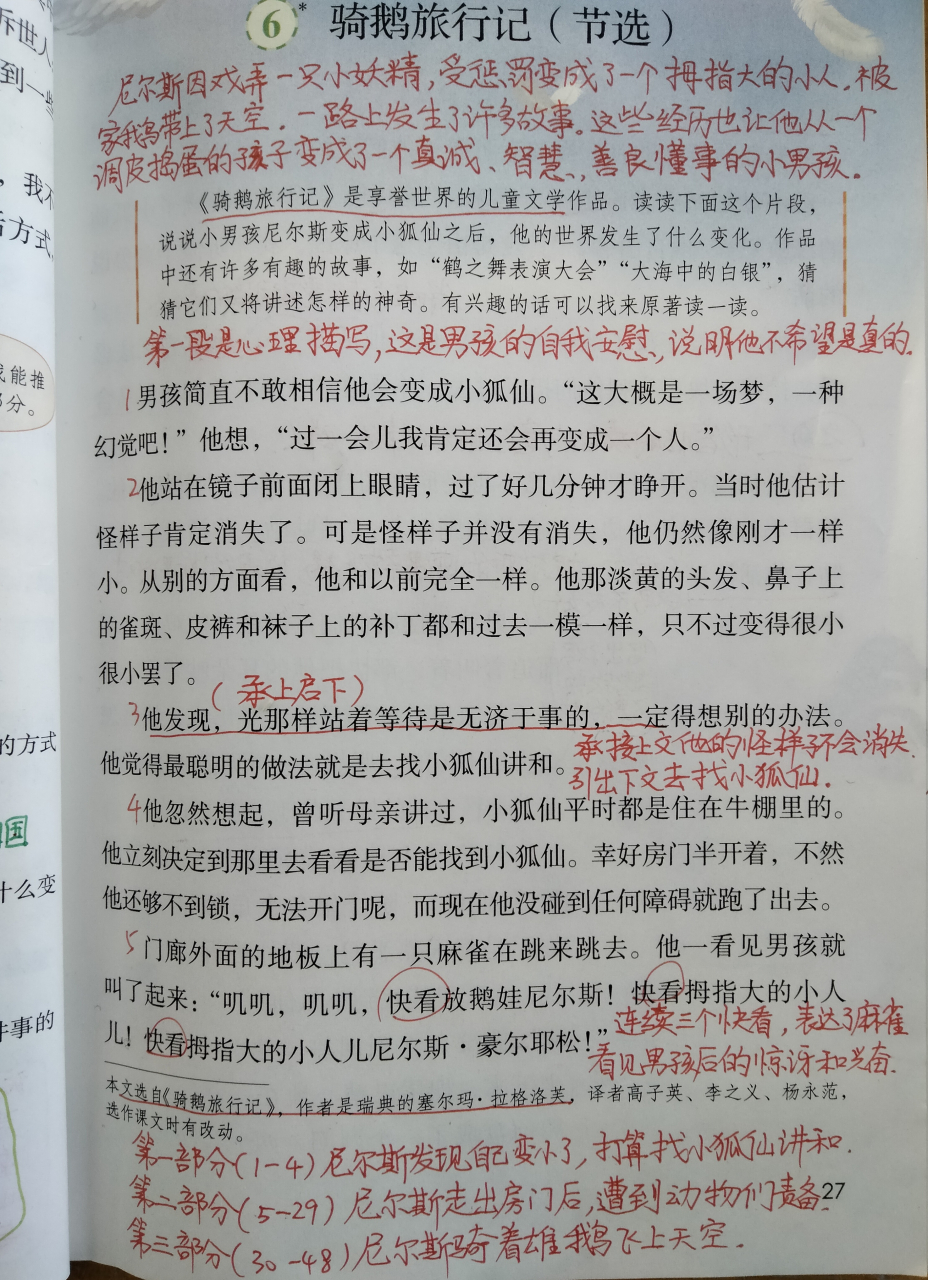 诉世人
到一些
，我不
后方式
我能推
部分。
的方式
国
什么变
件事的
6* 骑鹅旅行记（节选）
尼尔斯因戏弄一只小妖精，受惩罚变成了一个拇指大的小人．被
家鹅带上了天空．一路上发生了许多故事。这些经历也让他从一个
调皮捣蛋的孩子变成了一个真诚、智慧、善良懂事的小男孩．
《骑鹅旅行记》是享誉世界的儿童文学作品。读读下面这个片段，
说说小男孩尼尔斯变成小狐仙之后，他的世界发生了什么变化。作品
中还有许多有趣的故事，如“鹤之舞表演大会”“大海中的白银”，猜
猜它们又将讲述怎样的神奇。有兴趣的话可以找来原著读一读。
第一段是心理描写，这是男孩的自我安慰、说明他不希望是真的．
1男孩简直不敢相信他会变成小狐仙。“这大概是一场梦，一种
幻觉吧！”他想，“过一会儿我肯定还会再变成一个人。”
2他站在镜子前面闭上眼睛，过了好几分钟才睁开。当时他估计
怪样子肯定消失了。可是怪样子并没有消失，他仍然像刚才一样
小。从别的方面看，他和以前完全一样。他那淡黄的头发、鼻子上
的雀斑、皮裤和袜子上的补丁都和过去一模一样，只不过变得很小
很小罢了。
（承上启下）
3他发现，光那样站着等待是无济于事的，一定得想别的办法。
承接上文他的怪样子不会消失．
他觉得最聪明的做法就是去找小狐仙讲和。
引出下文去找小狐仙．
4他忽然想起，曾听母亲讲过，小狐仙平时都是住在牛棚里的。
他立刻决定到那里去看看是否能找到小狐仙。幸好房门半开着，不然
他还够不到锁，无法开门呢，而现在他没碰到任何障碍就跑了出去。
5门廊外面的地板上有一只麻雀在跳来跳去。他一看见男孩就
叫了起来：“叽叽，叽叽，快看放鹅娃尼尔斯！快看拇指大的小人
儿！快看拇指大的小人儿尼尔斯·豪尔耶松！”
连续三个快看，表达了麻雀
看见男孩后的惊讶和兴奋．
本文选自《骑鹅旅行记》，作者是瑞典的塞尔玛·拉格洛芙，译者高子英、李之义、杨永范，
选作课文时有改动。
第一部分（1-4）尼尔斯发现自己变小了，打算找小狐仙讲和．
第二部分（5-29）尼尔斯走出房门后，遭到动物们责备．
27
第三部分（30-48）尼尔斯骑着雄鹅飞上天空．